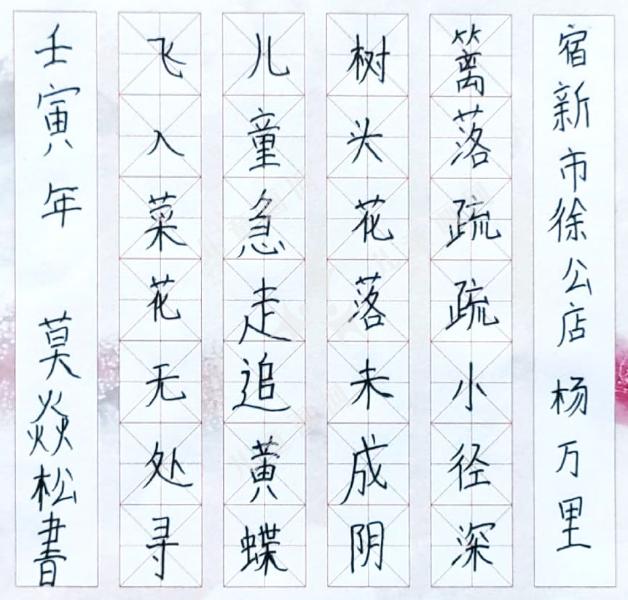 宿新市徐公店 杨万里
篱落疏疏小径深
树头花落未成阴
儿童急走追黄蝶
飞入菜花无处寻
壬寅年 莫焱松書